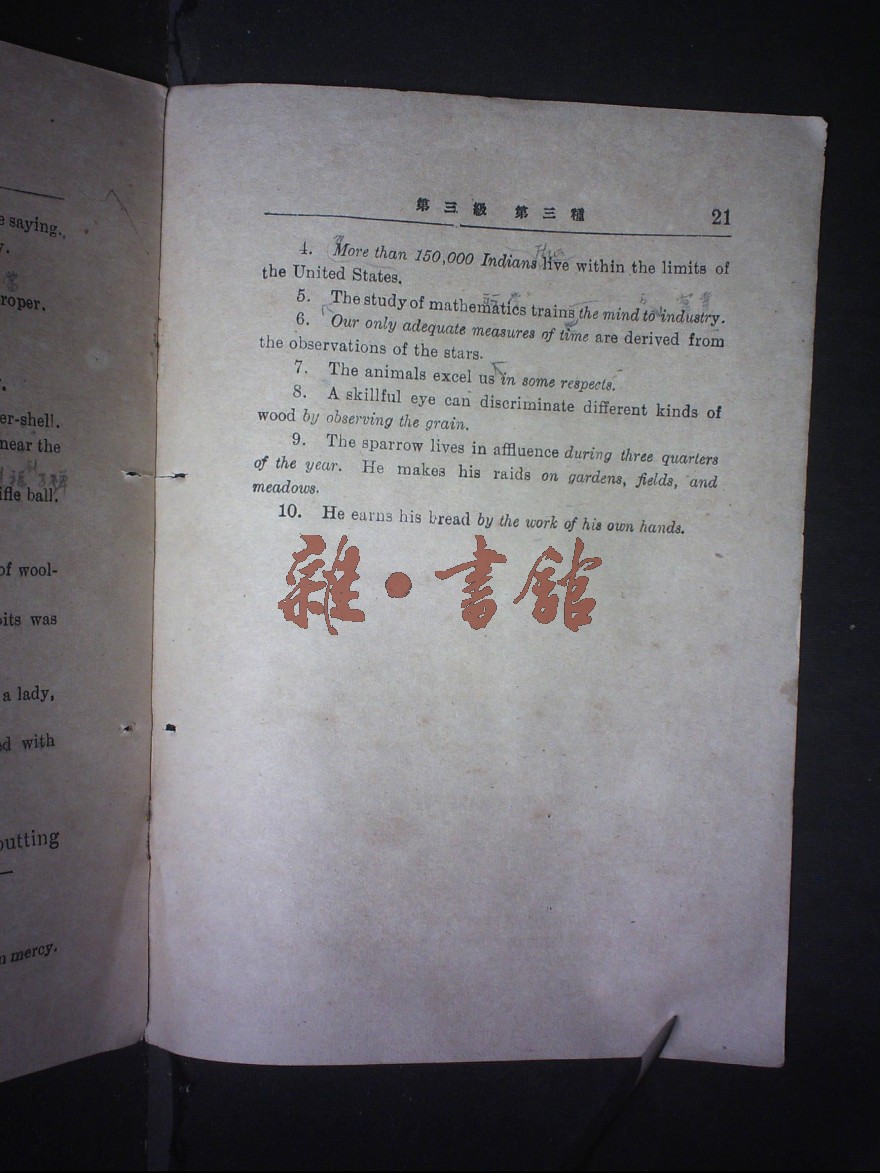 e saying.
y.
roper.
er-shell.
near the
ifle ball.
of wool-
its was
a lady,
d with
outting
n mercy.
第三級 第三種 21
4. More than 150,000 Indians live within the limits of
the United States.
5. The study of mathematics trains the mind to industry.
6. Our only adequate measures of time are derived from
the observations of the stars.
7. The animals excel us in some respects.
8. A skillful eye can discriminate different kinds of
wood by observing the grain.
9. The sparrow lives in affluence during three quarters
of the year. He makes his raids on gardens, fields, and
meadows.
10. He earns his bread by the work of his own hands.
雜·書館